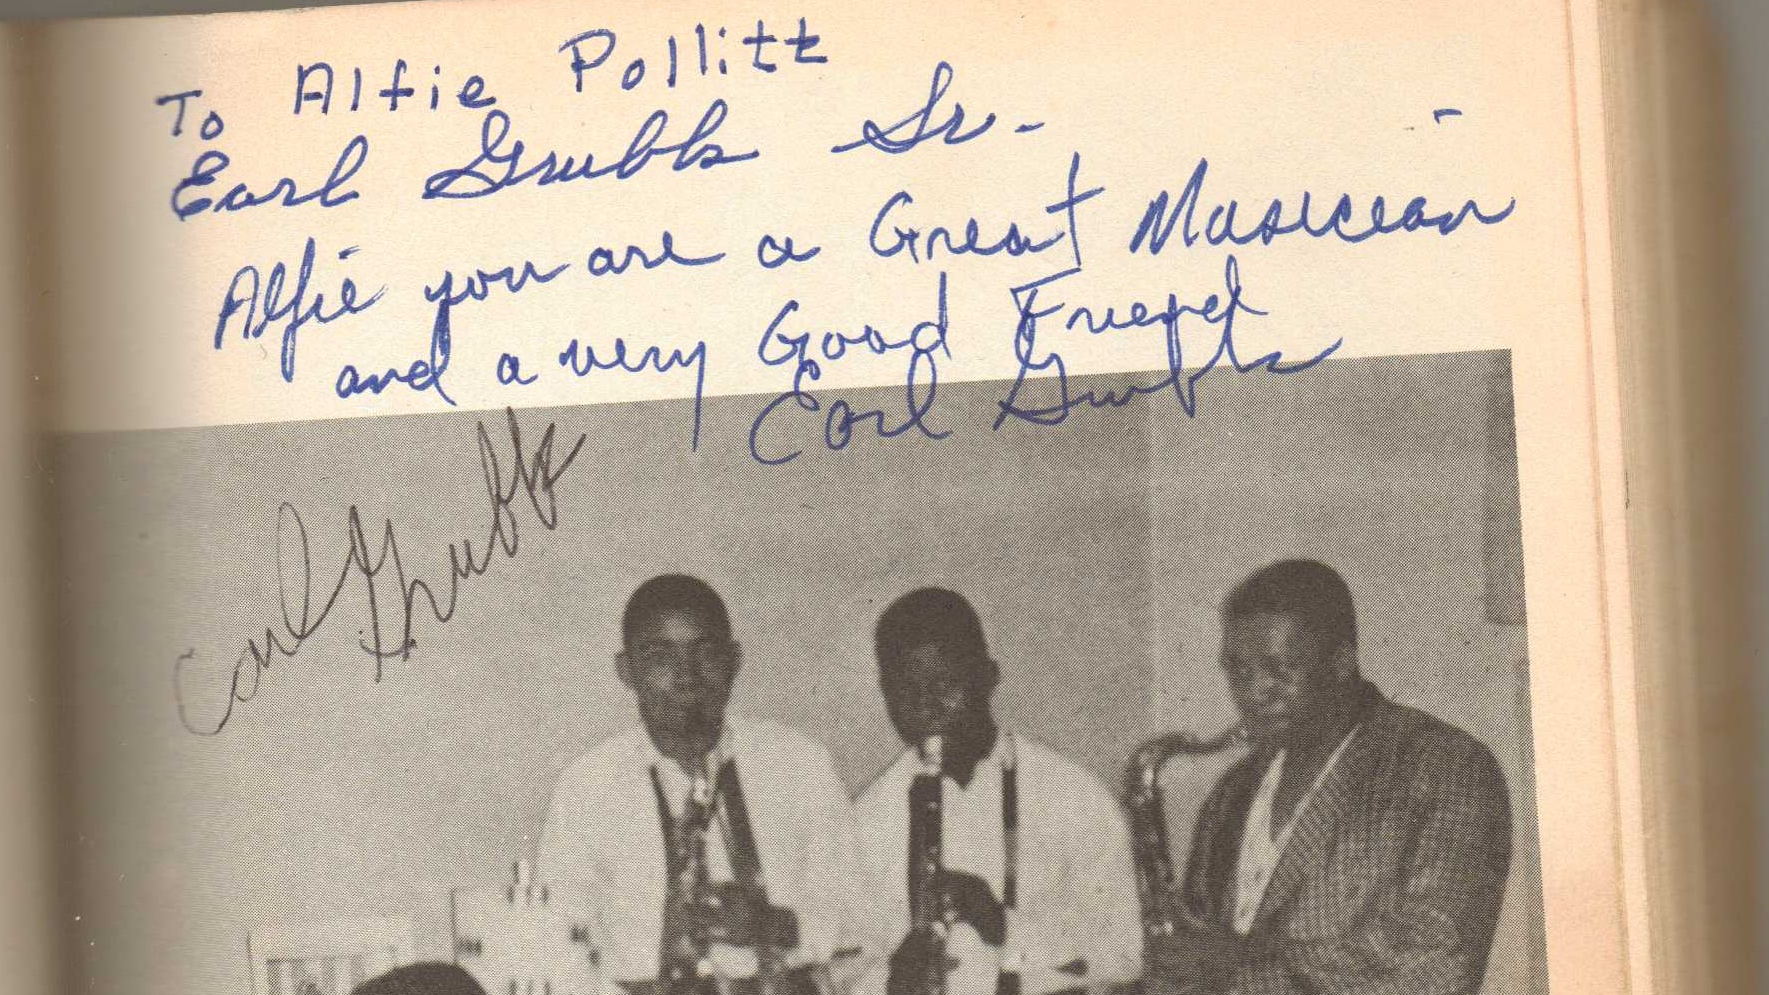 To Alfie Pollitt
Earl Grubbs Sr.
Alfie you are a Great Musicean
and a very Good Friend
Earl Grubbs
Carl Grubbs